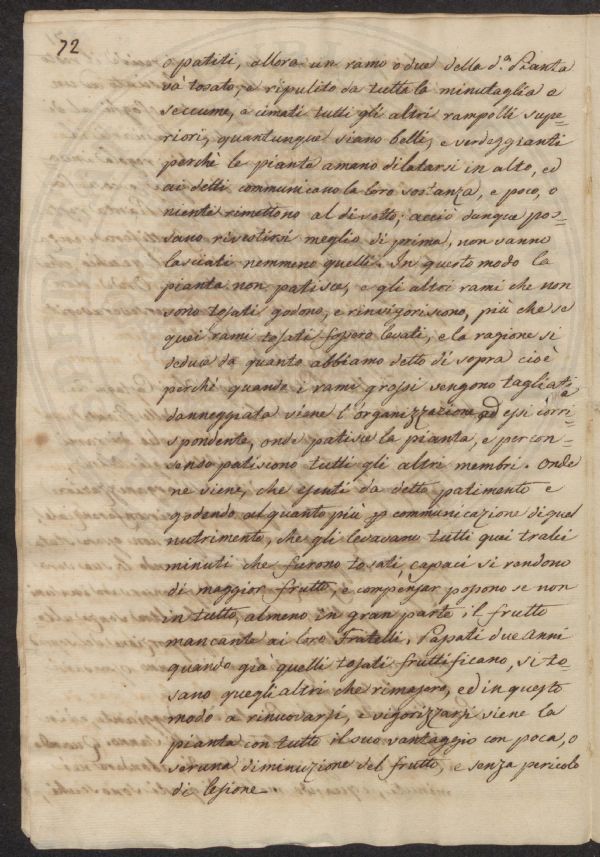 72
o patiti, allora un ramo o due della d.a Pianta
và tosato, e ripulito da tutta la minutaglia e
seccume, e cimati tutti gli altri rampolli supe-
riori, quantunque siano belli, e verdeggianti
perchè le piante amano dilatarsi in alto, ed
ai detti communicano la loro sostanza, e poco, o
niente rimettono al di sotto; acciò dunque pos-
sano rivestirsi meglio di prima, non vanno
lasciati nemmeno quelli. In questo modo la
pianta non patisce, e gli altri rami che non
sono tosati godono, e rinvigoriscono, più che se
quei rami tosati fossero levati, e la ragione si
deduce da quanto abbiamo detto di sopra cioè
perchè quando i rami grossi vengono tagliati,
danneggiata viene l'organizzazione ad essi corri-
spondente, onde patisce la pianta, e per con-
senso patiscono tutti gli altri membri. Onde
ne viene, che esenti da detto patimento e
godendo alquanto più p communicazione di quel
nutrimento, che gli levavano tutti quei tralci
minuti che furono tosati, capaci si rendono
di maggior frutto, e compensar possono se non
in tutto, almeno in gran parte il frutto
mancante ai loro Fratelli. Passati due anni
quando già quelli tosati fruttificano, si to-
sano quegli altri che rimasero, ed in questo
modo a rinuovarsi, e vigorizzarsi viene la
pianta con tutto il suo vantaggio con poca, o
seruna diminuzione del frutto, e senza pericolo
di lesione